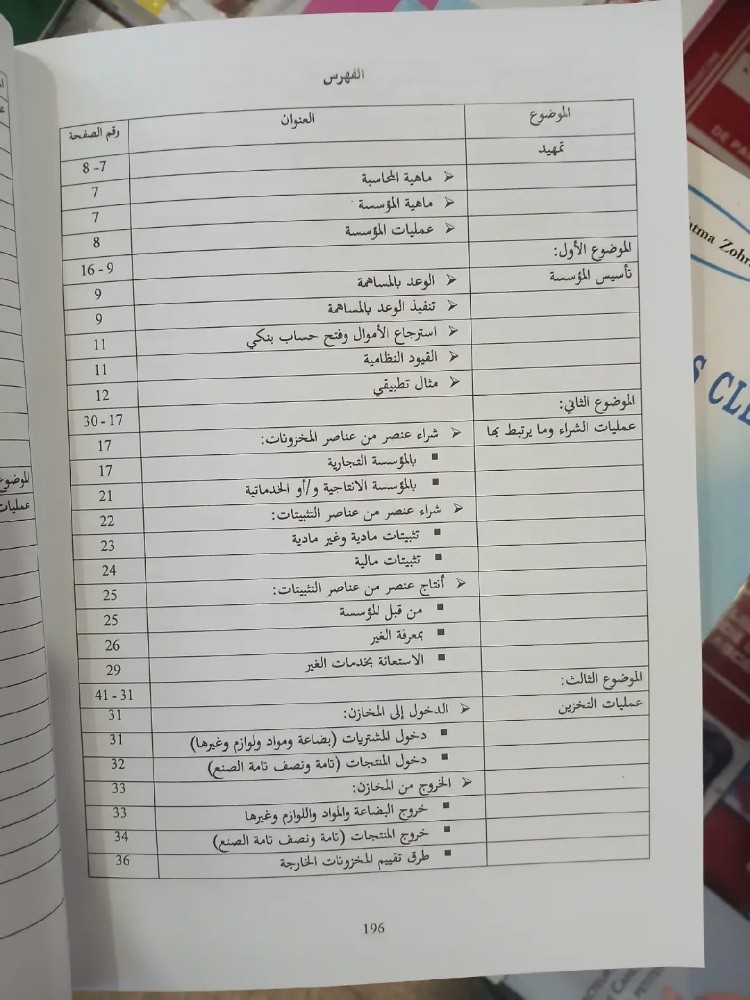 الفهرس
الموضوع العنوان رقم الصفحة
تمهيد 7-8
➢ ماهية المحاسبة 7
➢ ماهية المؤسسة 7
➢ عمليات المؤسسة 8
الموضوع الأول: 9-16
تأسيس المؤسسة ➢ الوعد بالمساهمة 9
➢ تنفيذ الوعد بالمساهمة 9
➢ استرجاع الأموال وفتح حساب بنكي 11
➢ القيود النظامية 11
➢ مثال تطبيقي 12
الموضوع الثاني: 17-30
عمليات الشراء وما يرتبط بها ➢ شراء عنصر من عناصر المخزونات: 17
▪ بالمؤسسة التجارية 17
▪ بالمؤسسة الانتاجية و/أو الخدماتية 21
➢ شراء عنصر من عناصر التثبيتات: 22
▪ تثبيتات مادية وغير مادية 23
▪ تثبيتات مالية 24
➢ أنتاج عنصر من عناصر التثبيتات: 25
▪ من قبل المؤسسة 25
▪ بمعرفة الغير 26
▪ الاستعانة بخدمات الغير 29
الموضوع الثالث: 31-41
عمليات التخزين ➢ الدخول إلى المخازن: 31
▪ دخول المشتريات (بضاعة ومواد ولوازم وغيرها) 31
▪ دخول المنتجات (تامة ونصف تامة الصنع) 32
➢ الخروج من المخازن: 33
▪ خروج البضاعة والمواد واللوازم وغيرها 33
▪ خروج المنتجات (تامة ونصف تامة الصنع) 34
▪ طرق تقييم المخزونات الخارجة 36
196
DE PA
S CLE